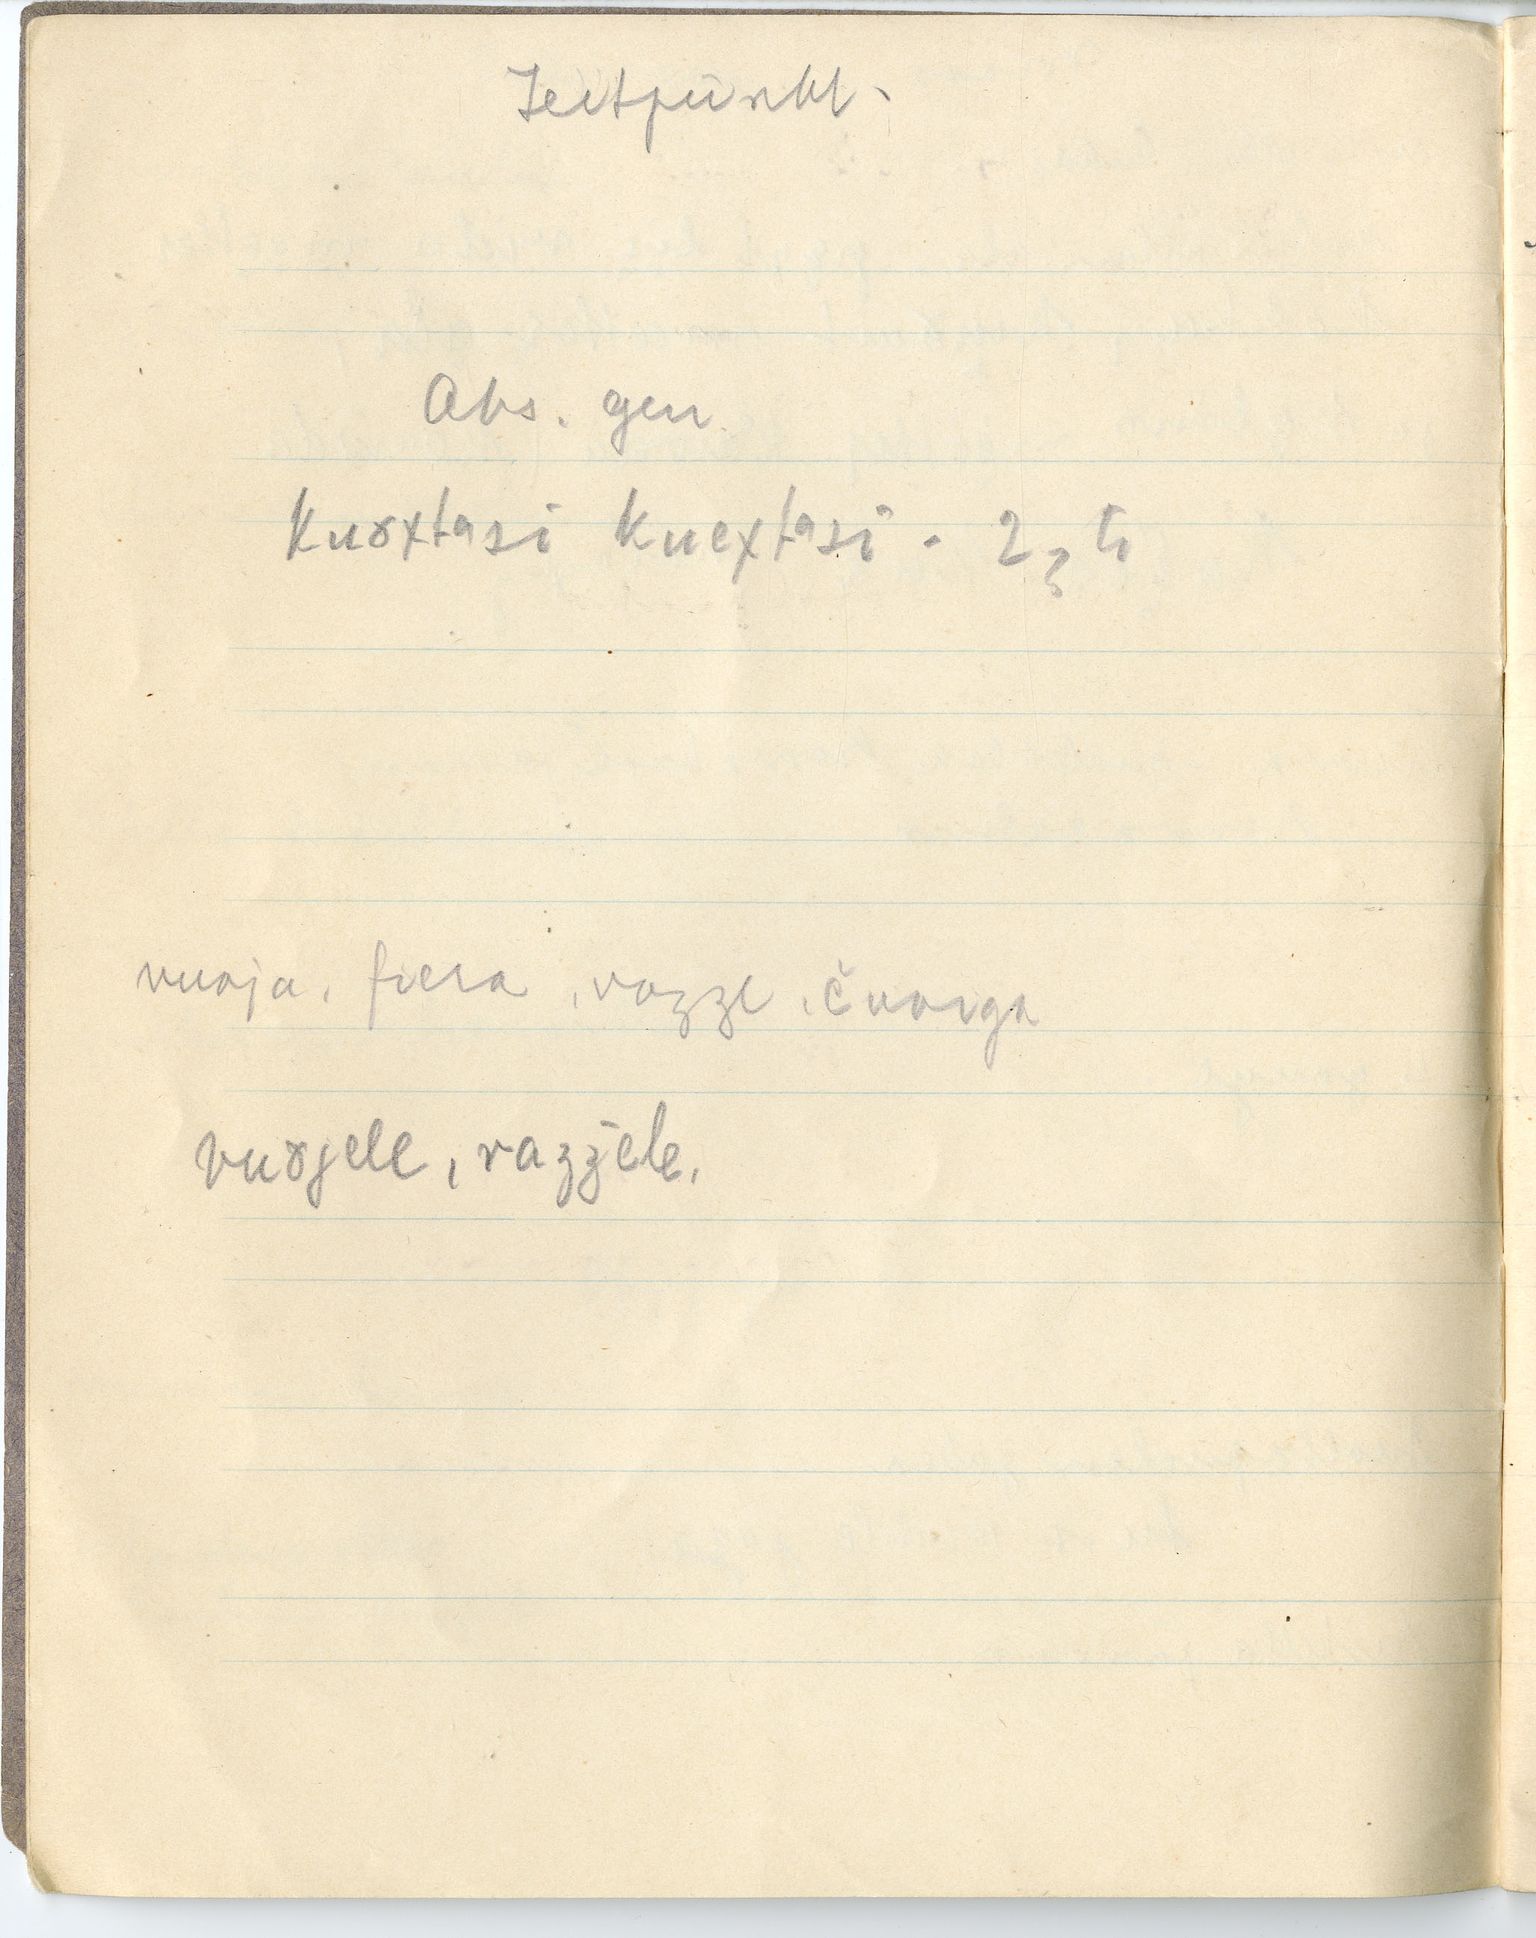 Zeitpunkt.
Abs. gen.
kuoxtasi kuextasi. 2
vuoja, fiera, vazze, čuoiga
vuojele, vazzele,